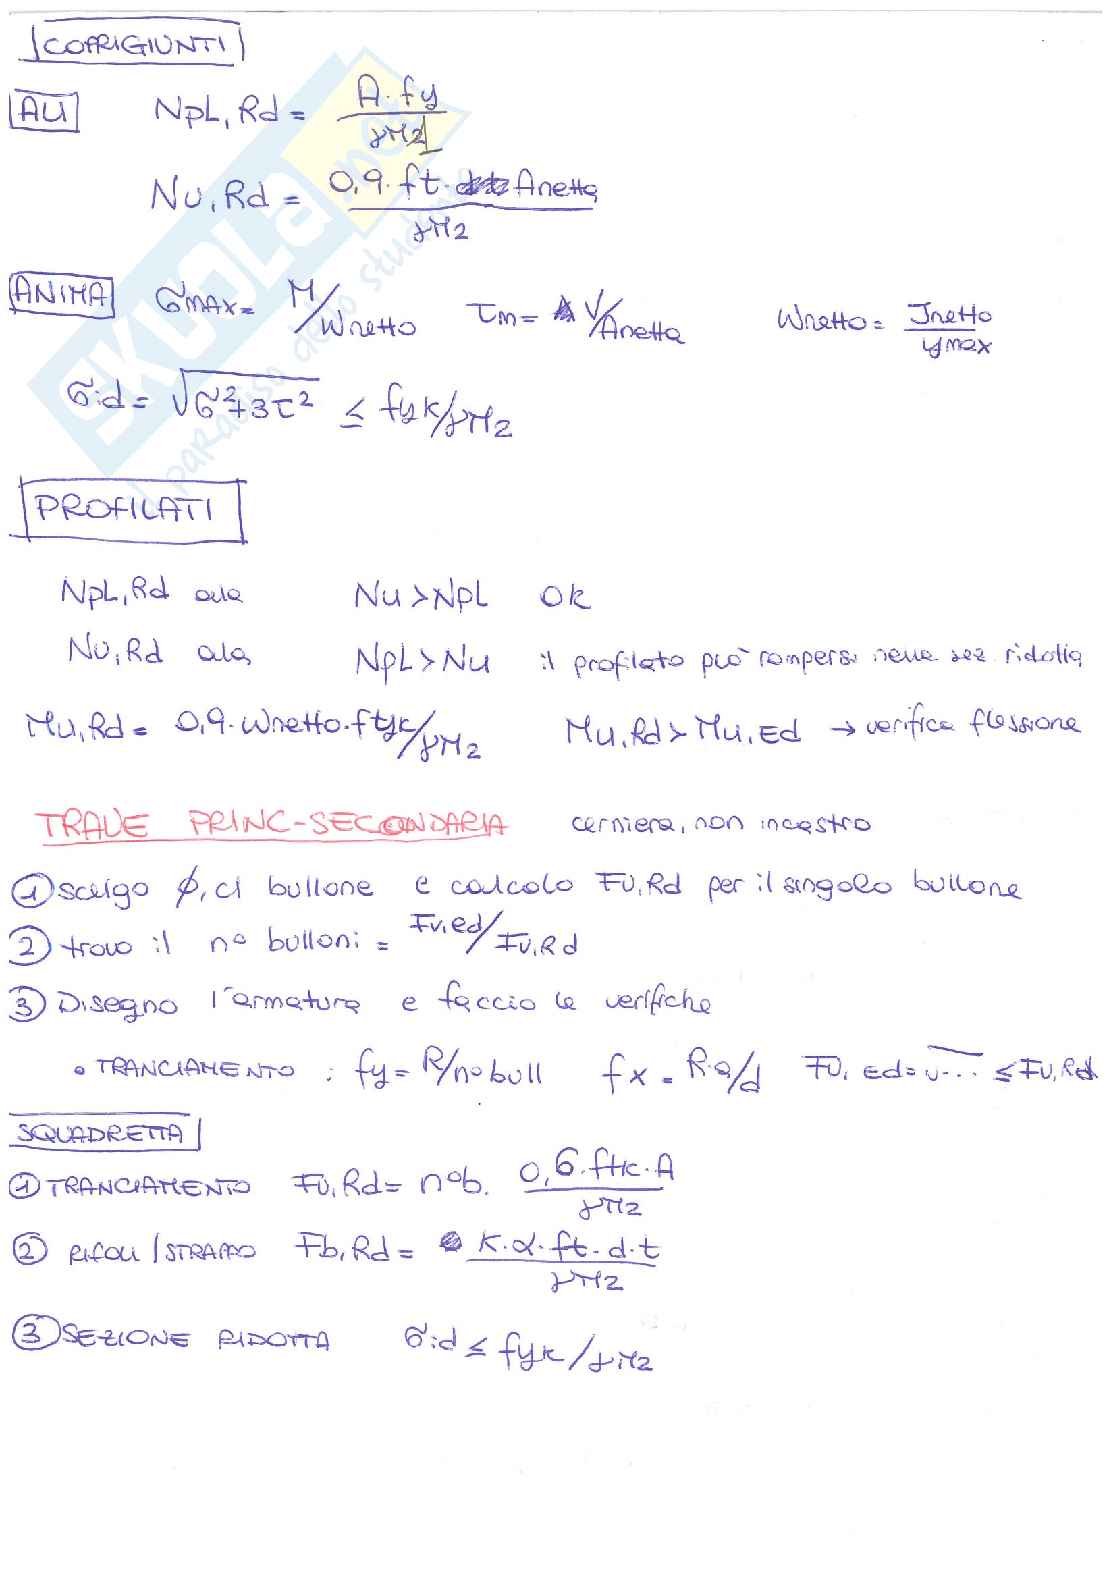 COPRIGIUNTI
ALI NpL,Rd = A·fy/γM2
Nu,Rd = 0,9·ft·Anetta/γM2
ANIMA σMAX= M/Wnetto τm= V/Anetta Wnetto= Jnetto/ymax
σid= √σ²+3τ² ≤ fyk/γM2
PROFILATI
NpL,Rd ala Nu>NpL ok
Nu,Rd ala NpL>Nu il profilato può rompersi nella sez ridotta
Mu,Rd= 0,9·Wnetto·ftyk/γM2 Mu,Rd>Mu,Ed → verifica flessione
TRAVE PRINC-SECONDARIA cerniera, non incastro
① scelgo ø, cl bullone e calcolo Fv,Rd per il singolo bullone
② trovo il n° bulloni = Fv,ed/Fv,Rd
③ Disegno l'armatura e faccio le verifiche
• TRANCIAMENTO : fy= R/n°bull fx= R·a/d Fv,Ed=√... ≤ Fv,Rd
SQUADRETTA
① TRANCIAMENTO Fv,Rd= n°b. 0,6·ftk·A/γM2
② RIFOLL/STRAPPO Fb,Rd= K·α·ft·d·t/γM2
③ SEZIONE RIDOTTA σid ≤ fyk/γM2
SKUOLa.net
il paradiso dello studente